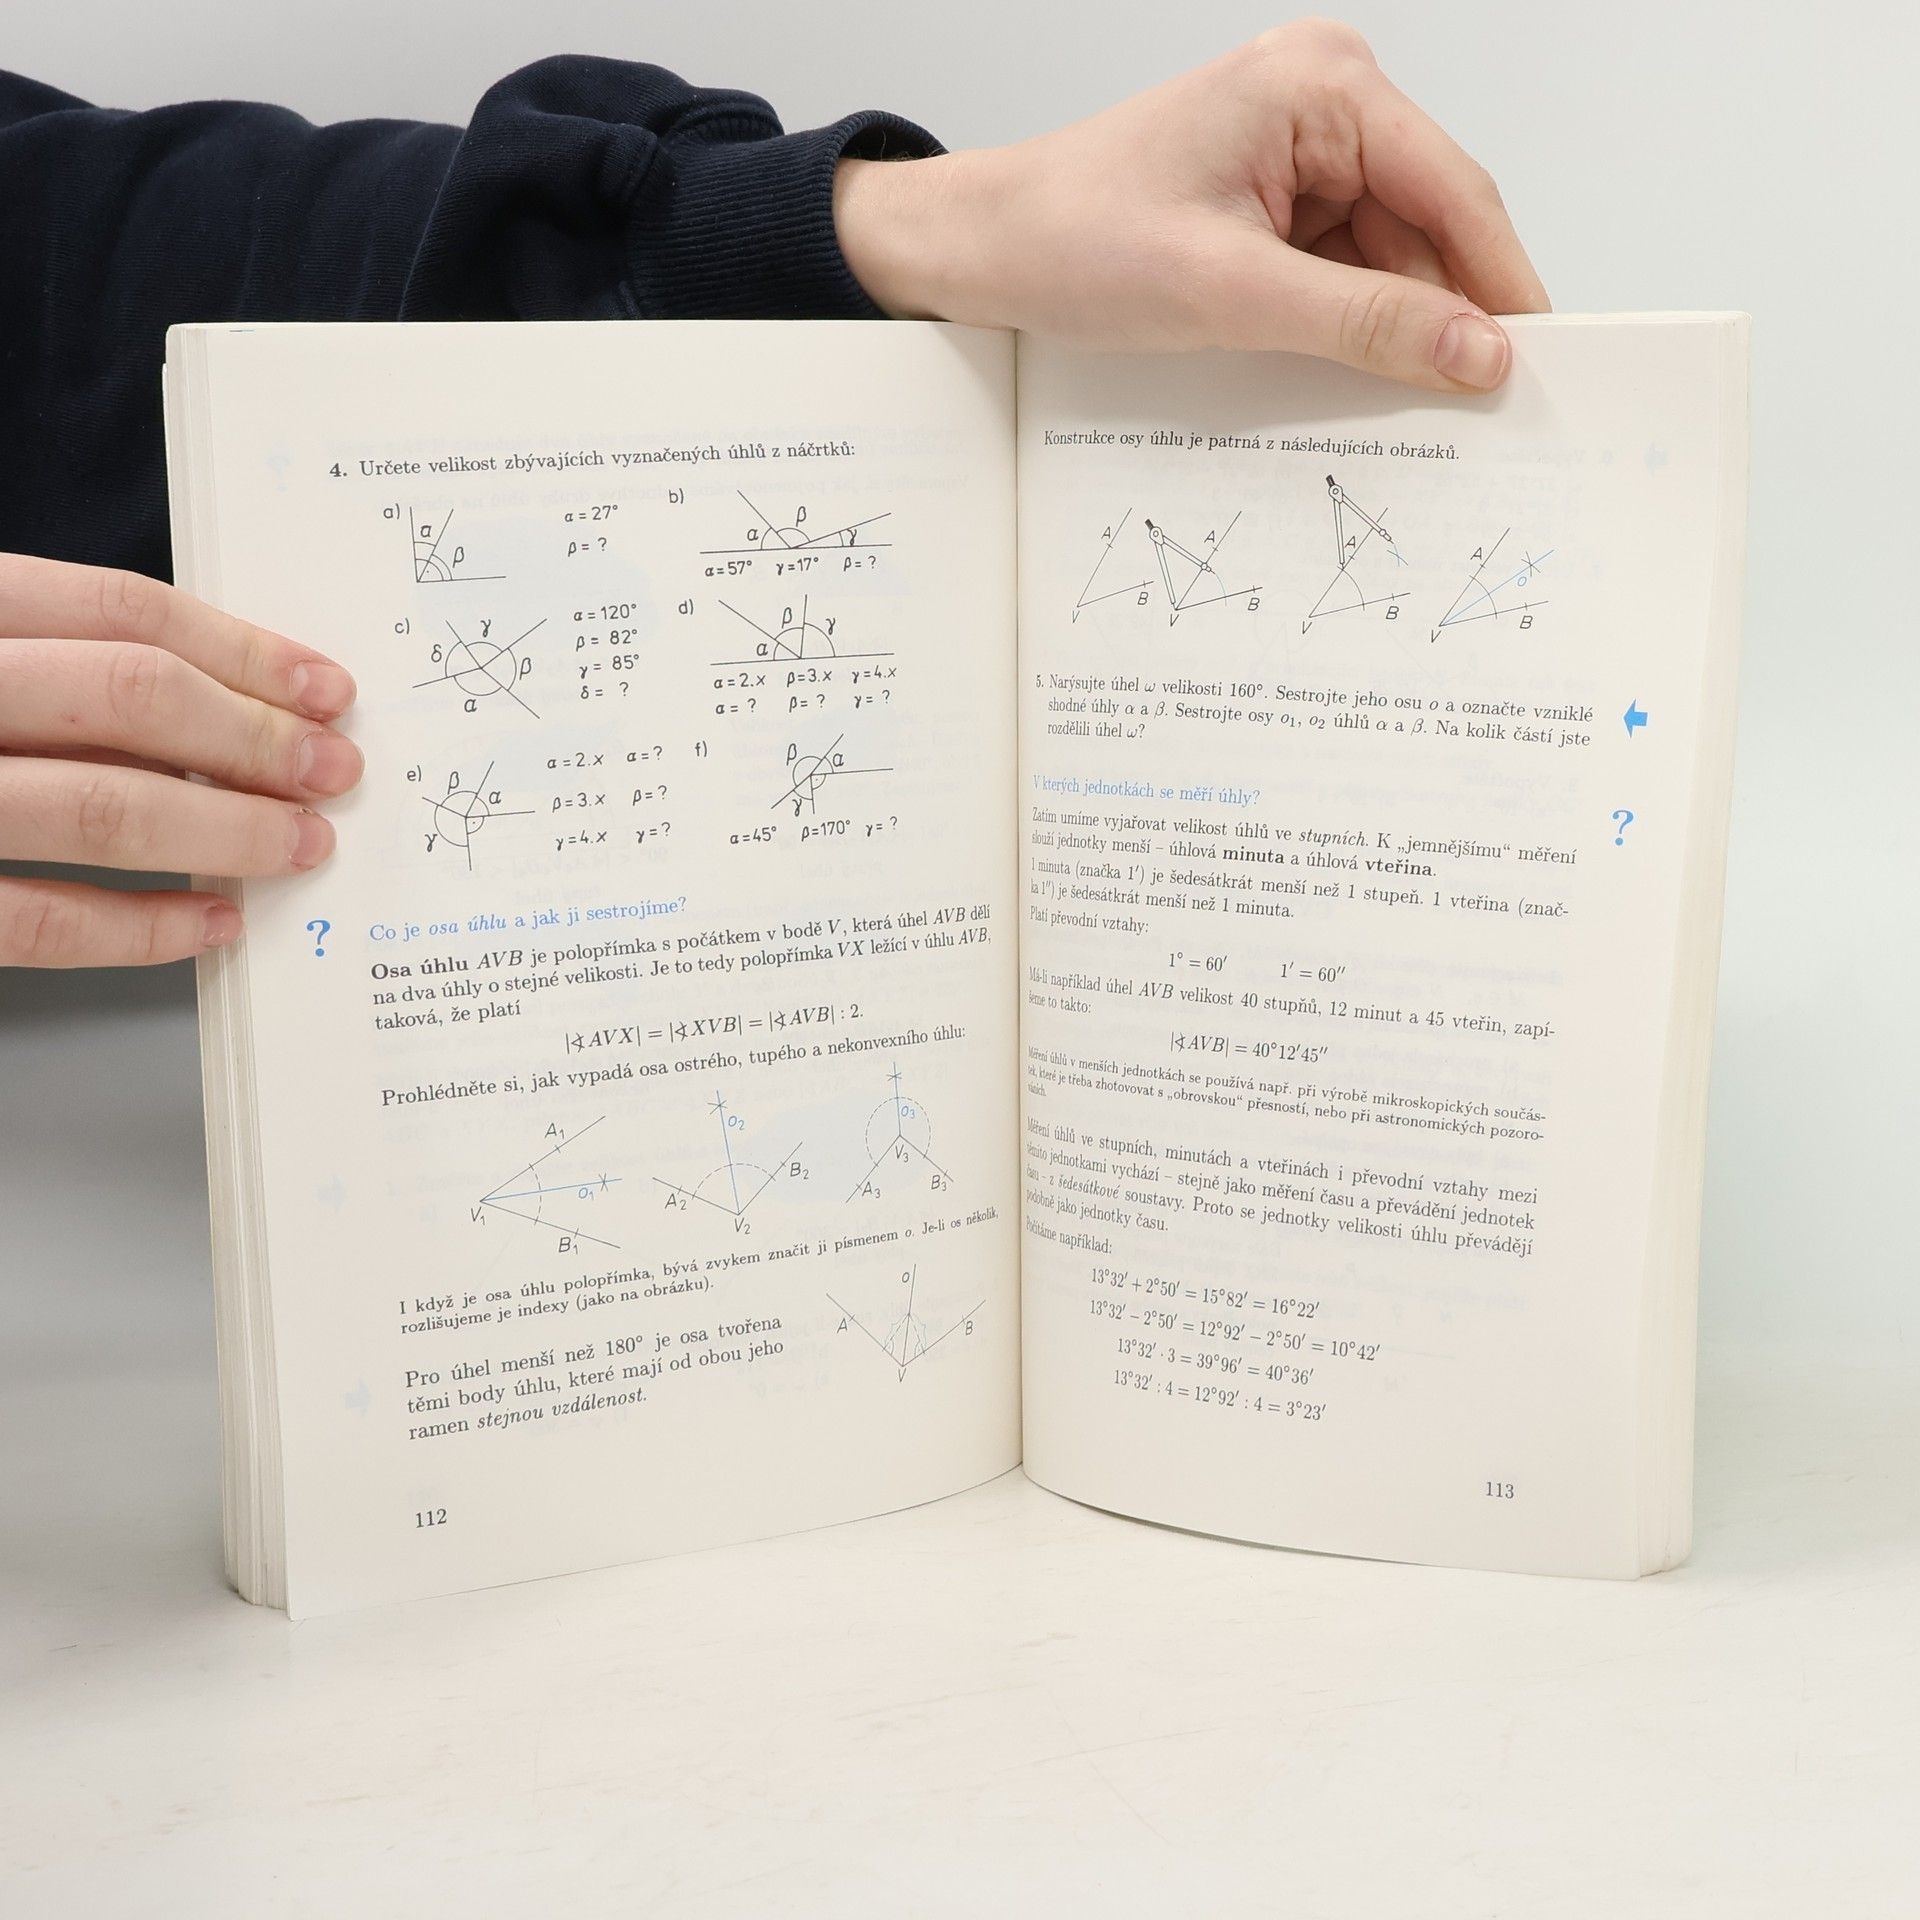 4. Určete velikost zbývajících vyznačených úhlů z náčrtků:
a)
α
β
α = 27°
β = ?
b)
α
β
γ
α = 57° γ = 17° β = ?
c)
γ
δ
β
α
α = 120°
β = 82°
γ = 85°
δ = ?
d)
α
β
γ
α = 2.x β = 3.x γ = 4.x
α = ? β = ? γ = ?
e)
β
α
γ
α = 2.x α = ?
β = 3.x β = ?
γ = 4.x γ = ?
f)
β
α
γ
α = 45° β = 170° γ = ?
?
Co je osa úhlu a jak ji sestrojíme?
Osa úhlu AVB je polopřímka s počátkem v bodě V, která úhel AVB dělí
na dva úhly o stejné velikosti. Je to tedy polopřímka VX ležící v úhlu AVB,
taková, že platí
|∢AVX| = |∢XVB| = |∢AVB| : 2.
Prohlédněte si, jak vypadá osa ostrého, tupého a nekonvexního úhlu:
A1
V1
o1
B1
o2
A2
B2
V2
o3
V3
A3
B3
I když je osa úhlu polopřímka, bývá zvykem značit ji písmenem o. Je-li os několik,
rozlišujeme je indexy (jako na obrázku).
Pro úhel menší než 180° je osa tvořena
těmi body úhlu, které mají od obou jeho
ramen stejnou vzdálenost.
o
A
B
V
112
Konstrukce osy úhlu je patrná z následujících obrázků.
A
B
V
A
B
V
A
B
V
A
o
B
V
5. Narýsujte úhel ω velikosti 160°. Sestrojte jeho osu o a označte vzniklé
shodné úhly α a β. Sestrojte osy o1, o2 úhlů α a β. Na kolik částí jste
rozdělili úhel ω?
V kterých jednotkách se měří úhly?
?
Zatím umíme vyjařovat velikost úhlů ve stupních. K „jemnějšímu“ měření
slouží jednotky menší – úhlová minuta a úhlová vteřina.
1 minuta (značka 1′) je šedesátkrát menší než 1 stupeň. 1 vteřina (znač-
ka 1″) je šedesátkrát menší než 1 minuta.
Platí převodní vztahy:
1° = 60′ 1′ = 60″
Má-li například úhel AVB velikost 40 stupňů, 12 minut a 45 vteřin, zapí-
šeme to takto:
|∢AVB| = 40°12′45″
Měření úhlů v menších jednotkách se používá např. při výrobě mikroskopických součás-
tek, které je třeba zhotovovat s „obrovskou“ přesností, nebo při astronomických pozoro-
váních.
Měření úhlů ve stupních, minutách a vteřinách i převodní vztahy mezi
těmito jednotkami vychází – stejně jako měření času a převádění jednotek
času – z šedesátkové soustavy. Proto se jednotky velikosti úhlu převádějí
podobně jako jednotky času.
Počítáme například:
13°32′ + 2°50′ = 15°82′ = 16°22′
13°32′ − 2°50′ = 12°92′ − 2°50′ = 10°42′
13°32′ · 3 = 39°96′ = 40°36′
13°32′ : 4 = 12°92′ : 4 = 3°23′
113